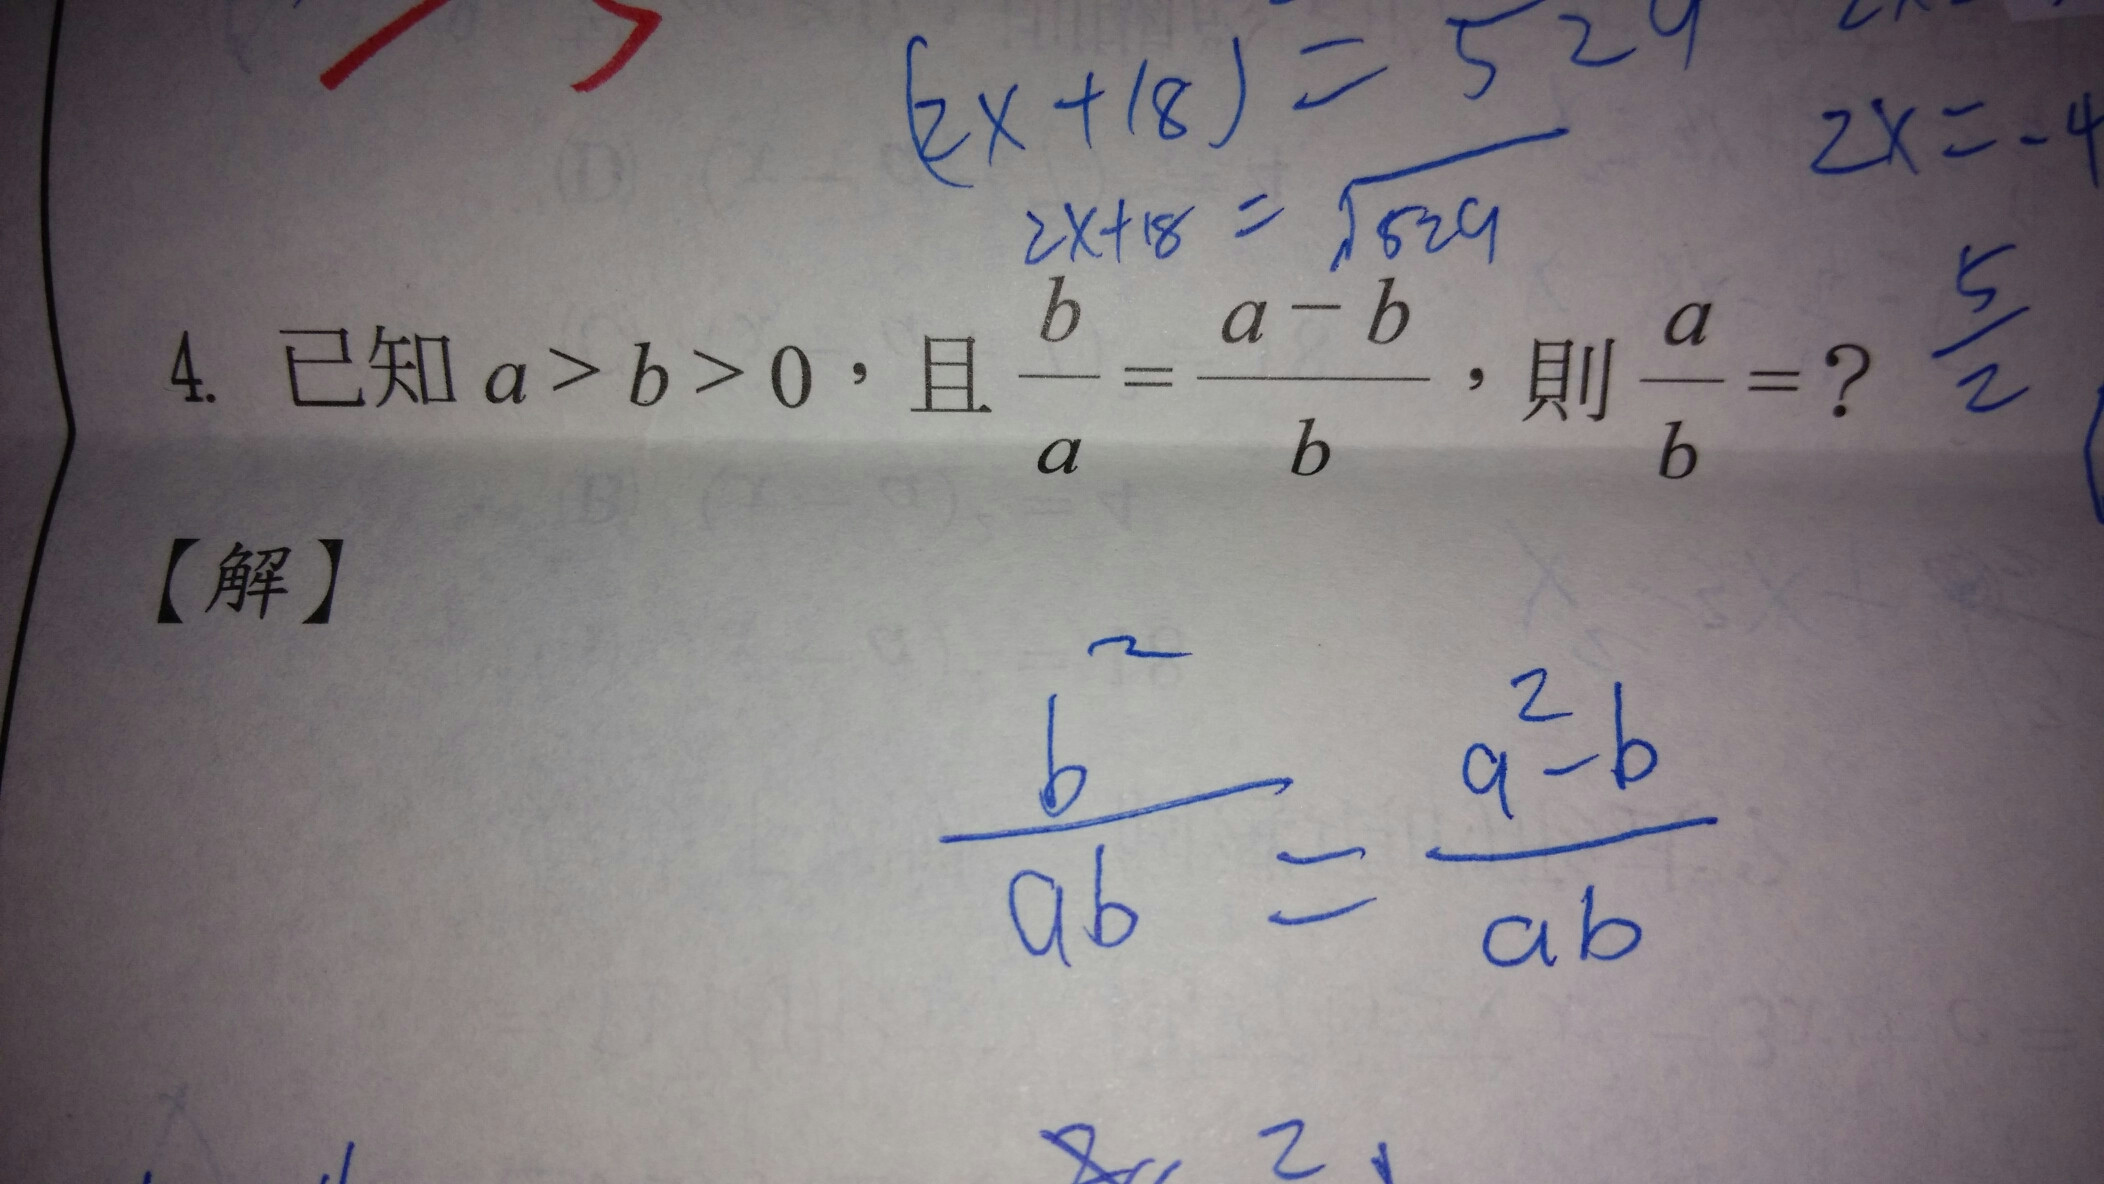 (2x+18) = 529
2x = -4
2x+18 = √529
4. 已知 a > b > 0，且 b/a = (a − b)/b，則 a/b = ? 5/2
【解】
b²/ab = a²-b/ab